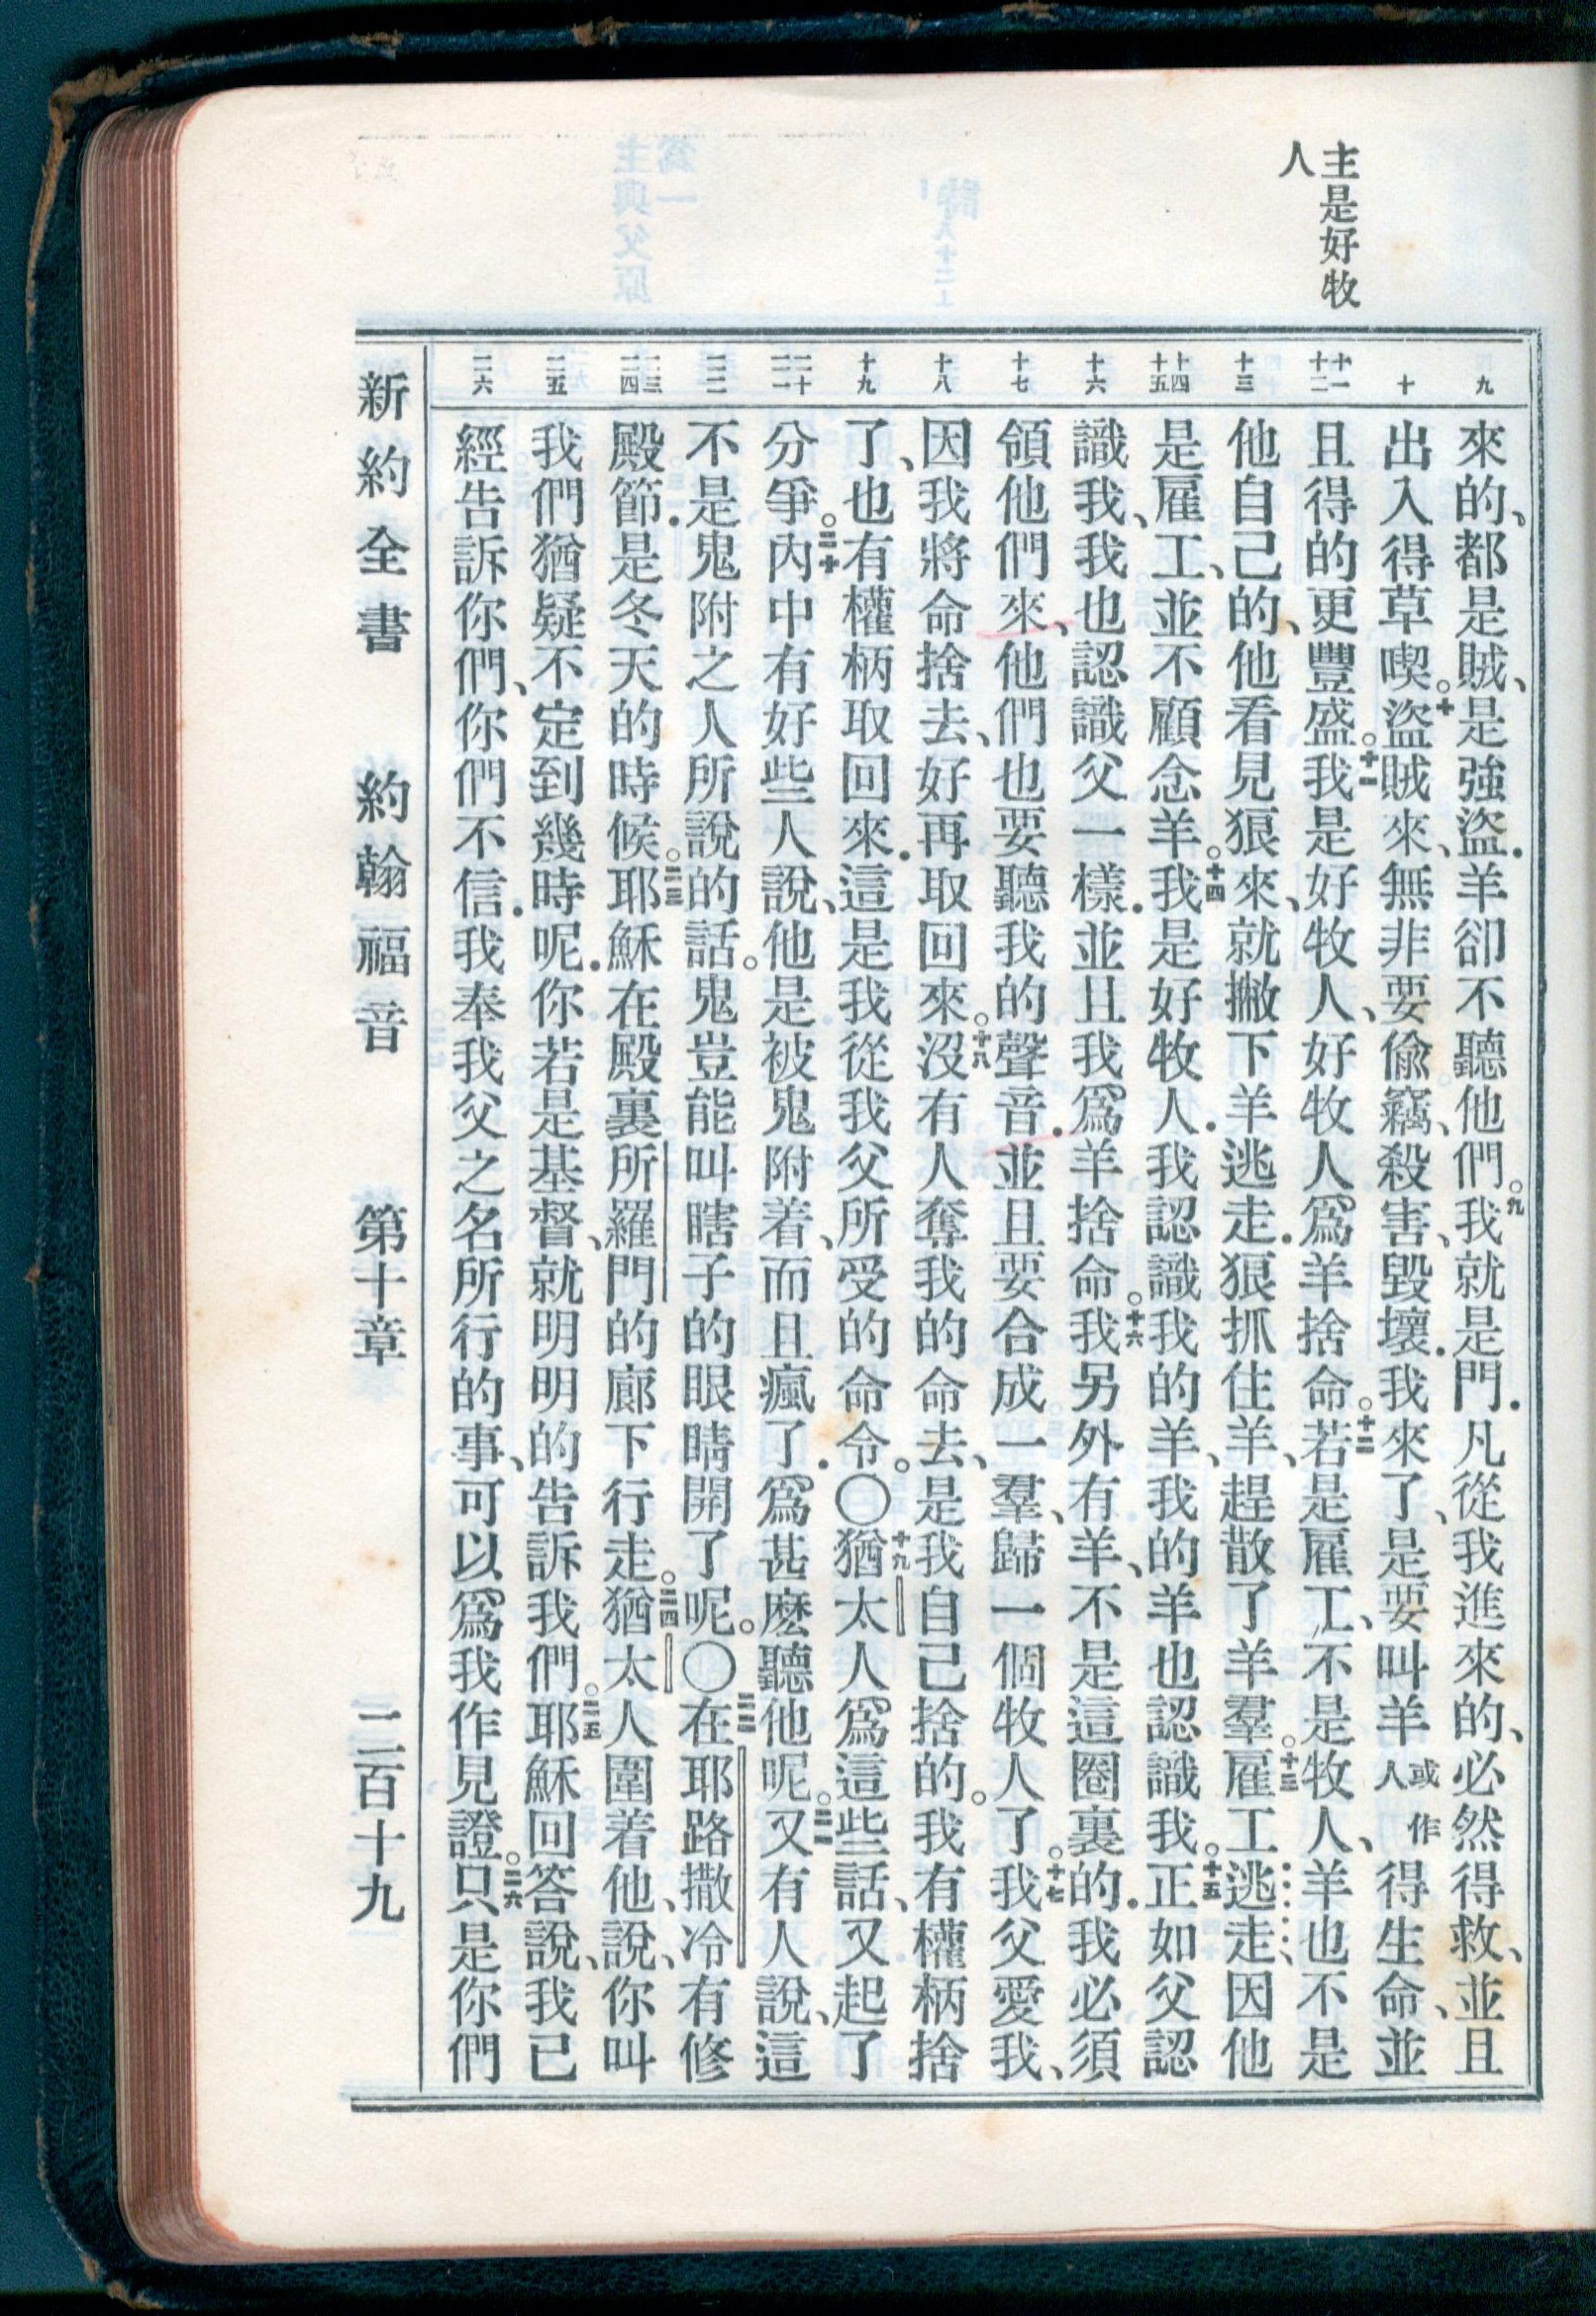 主是好牧
人
九
十
十一
十二
十三
十四
十五
十六
十七
十八
十九
二十
二一
二二
二三
二四
二五
二六
來的、都是賊、是強盜．羊卻不聽他們。九我就是門．凡從我進來的、必然得救、並且
出入得草喫。十盜賊來、無非要偷竊、殺害、毀壞．我來了、是要叫羊或作人得生命、並
且得的更豐盛。十一我是好牧人、好牧人爲羊捨命。十二若是雇工、不是牧人、羊也不是
他自己的、他看見狼來、就撇下羊逃走．狼抓住羊、趕散了羊羣。十三雇工逃走、因他
是雇工、並不顧念羊。十四我是好牧人．我認識我的羊、我的羊也認識我。十五正如父認
識我、我也認識父一樣．並且我爲羊捨命。十六我另外有羊、不是這圈裏的．我必須
領他們來、他們也要聽我的聲音．並且要合成一羣、歸一個牧人了。十七我父愛我、
因我將命捨去、好再取回來。十八沒有人奪我的命去、是我自己捨的。我有權柄捨
了、也有權柄取回來．這是我從我父所受的命令。〇十九猶太人爲這些話、又起了
分爭。二十內中有好些人說、他是被鬼附着、而且瘋了．爲甚麽聽他呢。二一又有人說、這
不是鬼附之人所說的話。鬼豈能叫瞎子的眼睛開了呢。〇二二在耶路撒冷有修
殿節．是冬天的時候。二三耶穌在殿裏所羅門的廊下行走。二四猶太人圍着他、說、你叫
我們猶疑不定到幾時呢．你若是基督、就明明的告訴我們。二五耶穌回答說、我已
經告訴你們、你們不信．我奉我父之名所行的事、可以爲我作見證。二六只是你們
新約全書　約翰福音　第十章　二百十九